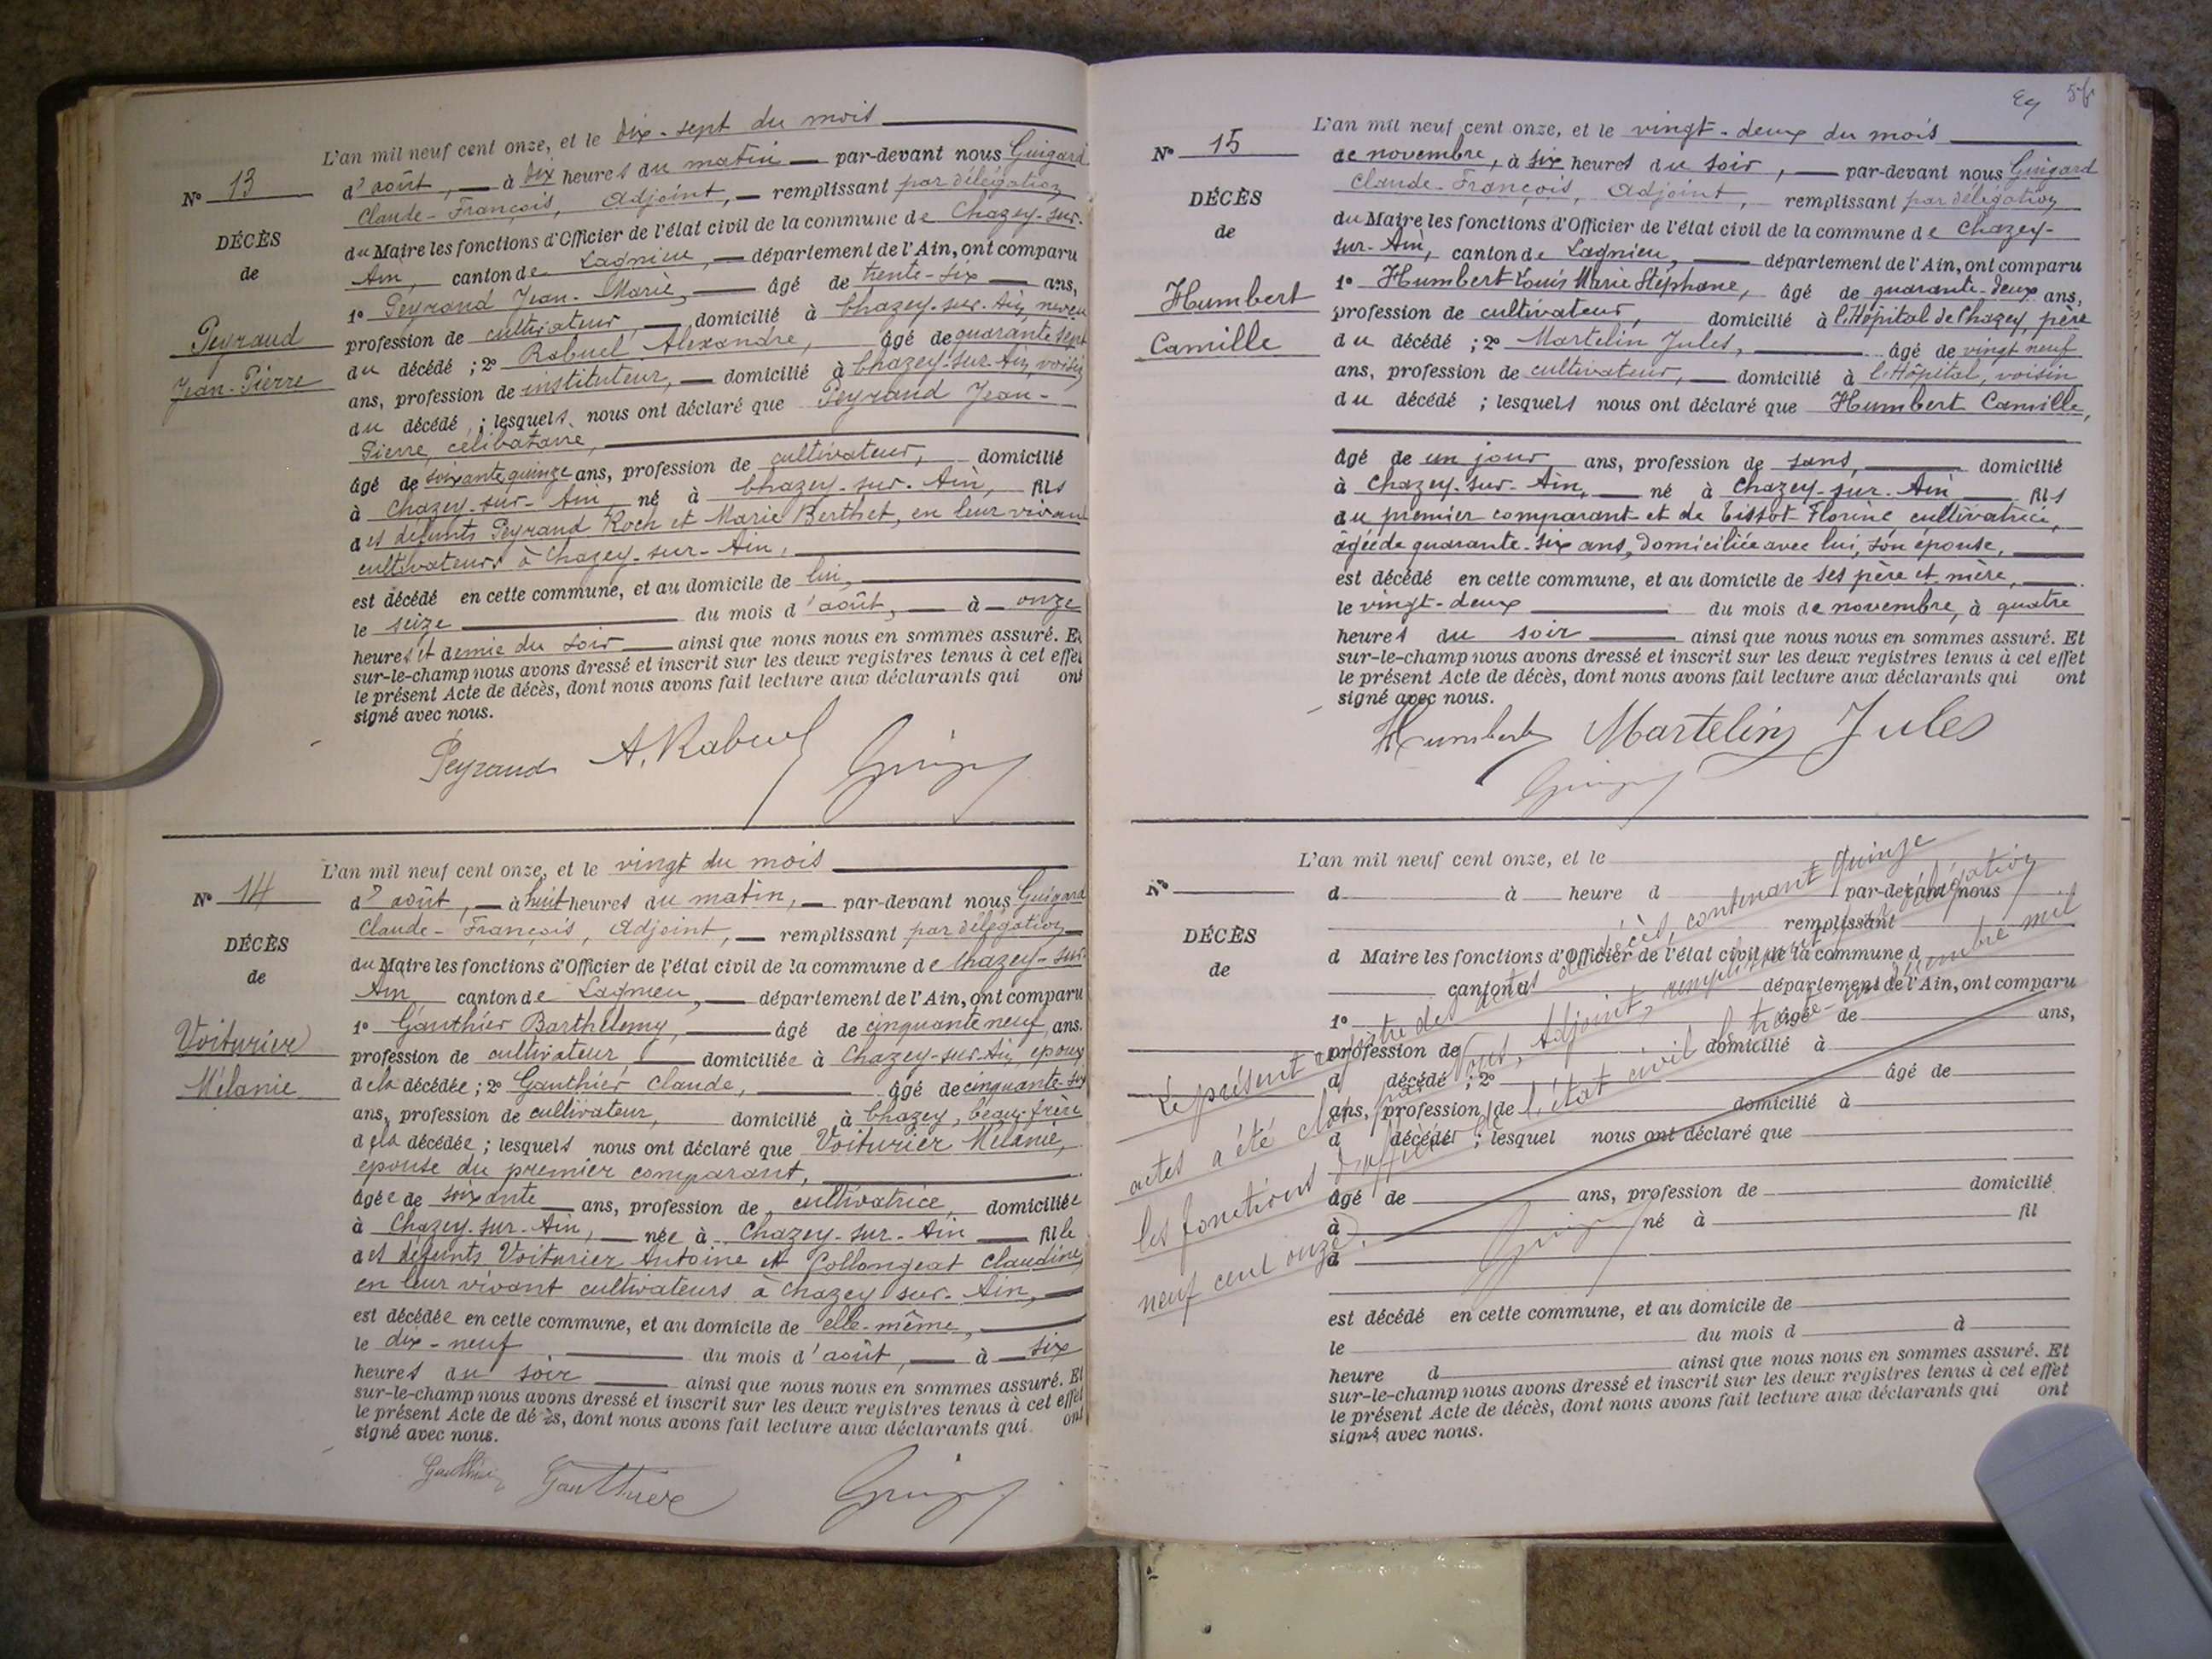 L'an mil neuf cent onze, et le dix-sept du mois
N° 13
d'août, à dix heures du matin par-devant nous Guigard
Claude-François, Adjoint, remplissant par délégation
DÉCÈS
du Maire les fonctions d'Officier de l'état civil de la commune de Chazey-sur-
de
Ain, canton de Lagnieu, département de l'Ain, ont comparu
1° Peyraud Jean-Marie, âgé de trente-six ans,
Peyraud
profession de cultivateur, domicilié à Chazey-sur-Ain, neveu
Jean-Pierre
du décédé ; 2° Rabuel Alexandre, âgé de quarante sept
ans, profession de instituteur, domicilié à Chazey-sur-Ain, voisin
du décédé ; lesquels nous ont déclaré que Peyraud Jean-
Pierre, célibataire,
âgé de soixante quinze ans, profession de cultivateur, domicilié
à Chazey-sur-Ain né à Chazey-sur-Ain, fils
des défunts Peyraud Roch et Marie Berthet, en leur vivant
cultivateurs à Chazey-sur-Ain,
est décédé en cette commune, et au domicile de lui,
le seize du mois d'août, à onze
heures et demie du soir ainsi que nous nous en sommes assuré. Et
sur-le-champ nous avons dressé et inscrit sur les deux registres tenus à cet effet
le présent Acte de décès, dont nous avons fait lecture aux déclarants qui ont
signé avec nous.
Peyraud A. Rabuel
L'an mil neuf cent onze, et le vingt du mois
N° 14
d'août, à huit heures du matin, par-devant nous Guigard
Claude-François, Adjoint, remplissant par délégation
DÉCÈS
du Maire les fonctions d'Officier de l'état civil de la commune de Chazey-sur-
de
Ain canton de Lagnieu, département de l'Ain, ont comparu
1° Gauthier Barthélemy, âgé de cinquante neuf ans.
Voiturier
profession de cultivateur domiciliée à Chazey-sur-Ain, époux
Mélanie
de la décédée ; 2° Gauthier Claude, âgé de cinquante-six
ans, profession de cultivateur, domicilié à Chazey, beau-frère
de la décédée ; lesquels nous ont déclaré que Voiturier Mélanie,
épouse du premier comparant,
âgée de soixante ans, profession de cultivatrice domiciliée
à Chazey-sur-Ain, née à Chazey-sur-Ain fille
des défunts Voiturier Antoine et Collongeat Claudine,
en leur vivant cultivateurs à Chazey-sur-Ain,
est décédée en cette commune, et au domicile de elle-même,
le dix-neuf du mois d'août, à six
heures du soir ainsi que nous nous en sommes assuré. Et
sur-le-champ nous avons dressé et inscrit sur les deux registres tenus à cet effet
le présent Acte de décès, dont nous avons fait lecture aux déclarants qui ont
signé avec nous.
Gauthier Gauthier
L'an mil neuf cent onze, et le vingt-deux du mois
N° 15
de novembre, à six heures du soir, par-devant nous Guigard
Claude-François, Adjoint, remplissant par délégation
DÉCÈS
du Maire les fonctions d'Officier de l'état civil de la commune de Chazey-
de
sur-Ain, canton de Lagnieu, département de l'Ain, ont comparu
1° Humbert Louis Marie Stéphane, âgé de quarante-deux ans,
Humbert
profession de cultivateur, domicilié à l'Hôpital de Chazey, père
Camille
du décédé ; 2° Martelin Jules, âgé de vingt neuf
ans, profession de cultivateur, domicilié à l'Hôpital, voisin
du décédé ; lesquels nous ont déclaré que Humbert Camille,
âgé de un jour ans, profession de sans, domicilié
à Chazey-sur-Ain, né à Chazey-sur-Ain fils
du premier comparant et de Tissot Florine cultivatrice,
âgée de quarante-six ans, domiciliée avec lui, son épouse,
est décédé en cette commune, et au domicile de ses père et mère,
le vingt-deux du mois de novembre, à quatre
heures du soir ainsi que nous nous en sommes assuré. Et
sur-le-champ nous avons dressé et inscrit sur les deux registres tenus à cet effet
le présent Acte de décès, dont nous avons fait lecture aux déclarants qui ont
signé avec nous.
Humbert Martelin Jules
L'an mil neuf cent onze, et le
N°
d à heure d par-devant nous
remplissant
DÉCÈS
d Maire les fonctions d'Officier de l'état civil de la commune d
de
canton d département de l'Ain, ont comparu
1° âgé de ans,
profession de domicilié à
d décédé ; 2° âgé de
ans, profession de domicilié à
d décédé ; lesquel nous ont déclaré que
âgé de ans, profession de domicilié
à né à fil
d
est décédé en cette commune, et au domicile de
le du mois d à
heure d ainsi que nous nous en sommes assuré. Et
sur-le-champ nous avons dressé et inscrit sur les deux registres tenus à cet effet
le présent Acte de décès, dont nous avons fait lecture aux déclarants qui ont
signé avec nous.
Le présent registre des actes de décès, contenant quinze
actes a été clos par Nous, Adjoint, remplissant par délégation
les fonctions d'officier de l'état civil le trente-un décembre mil
neuf cent onze.